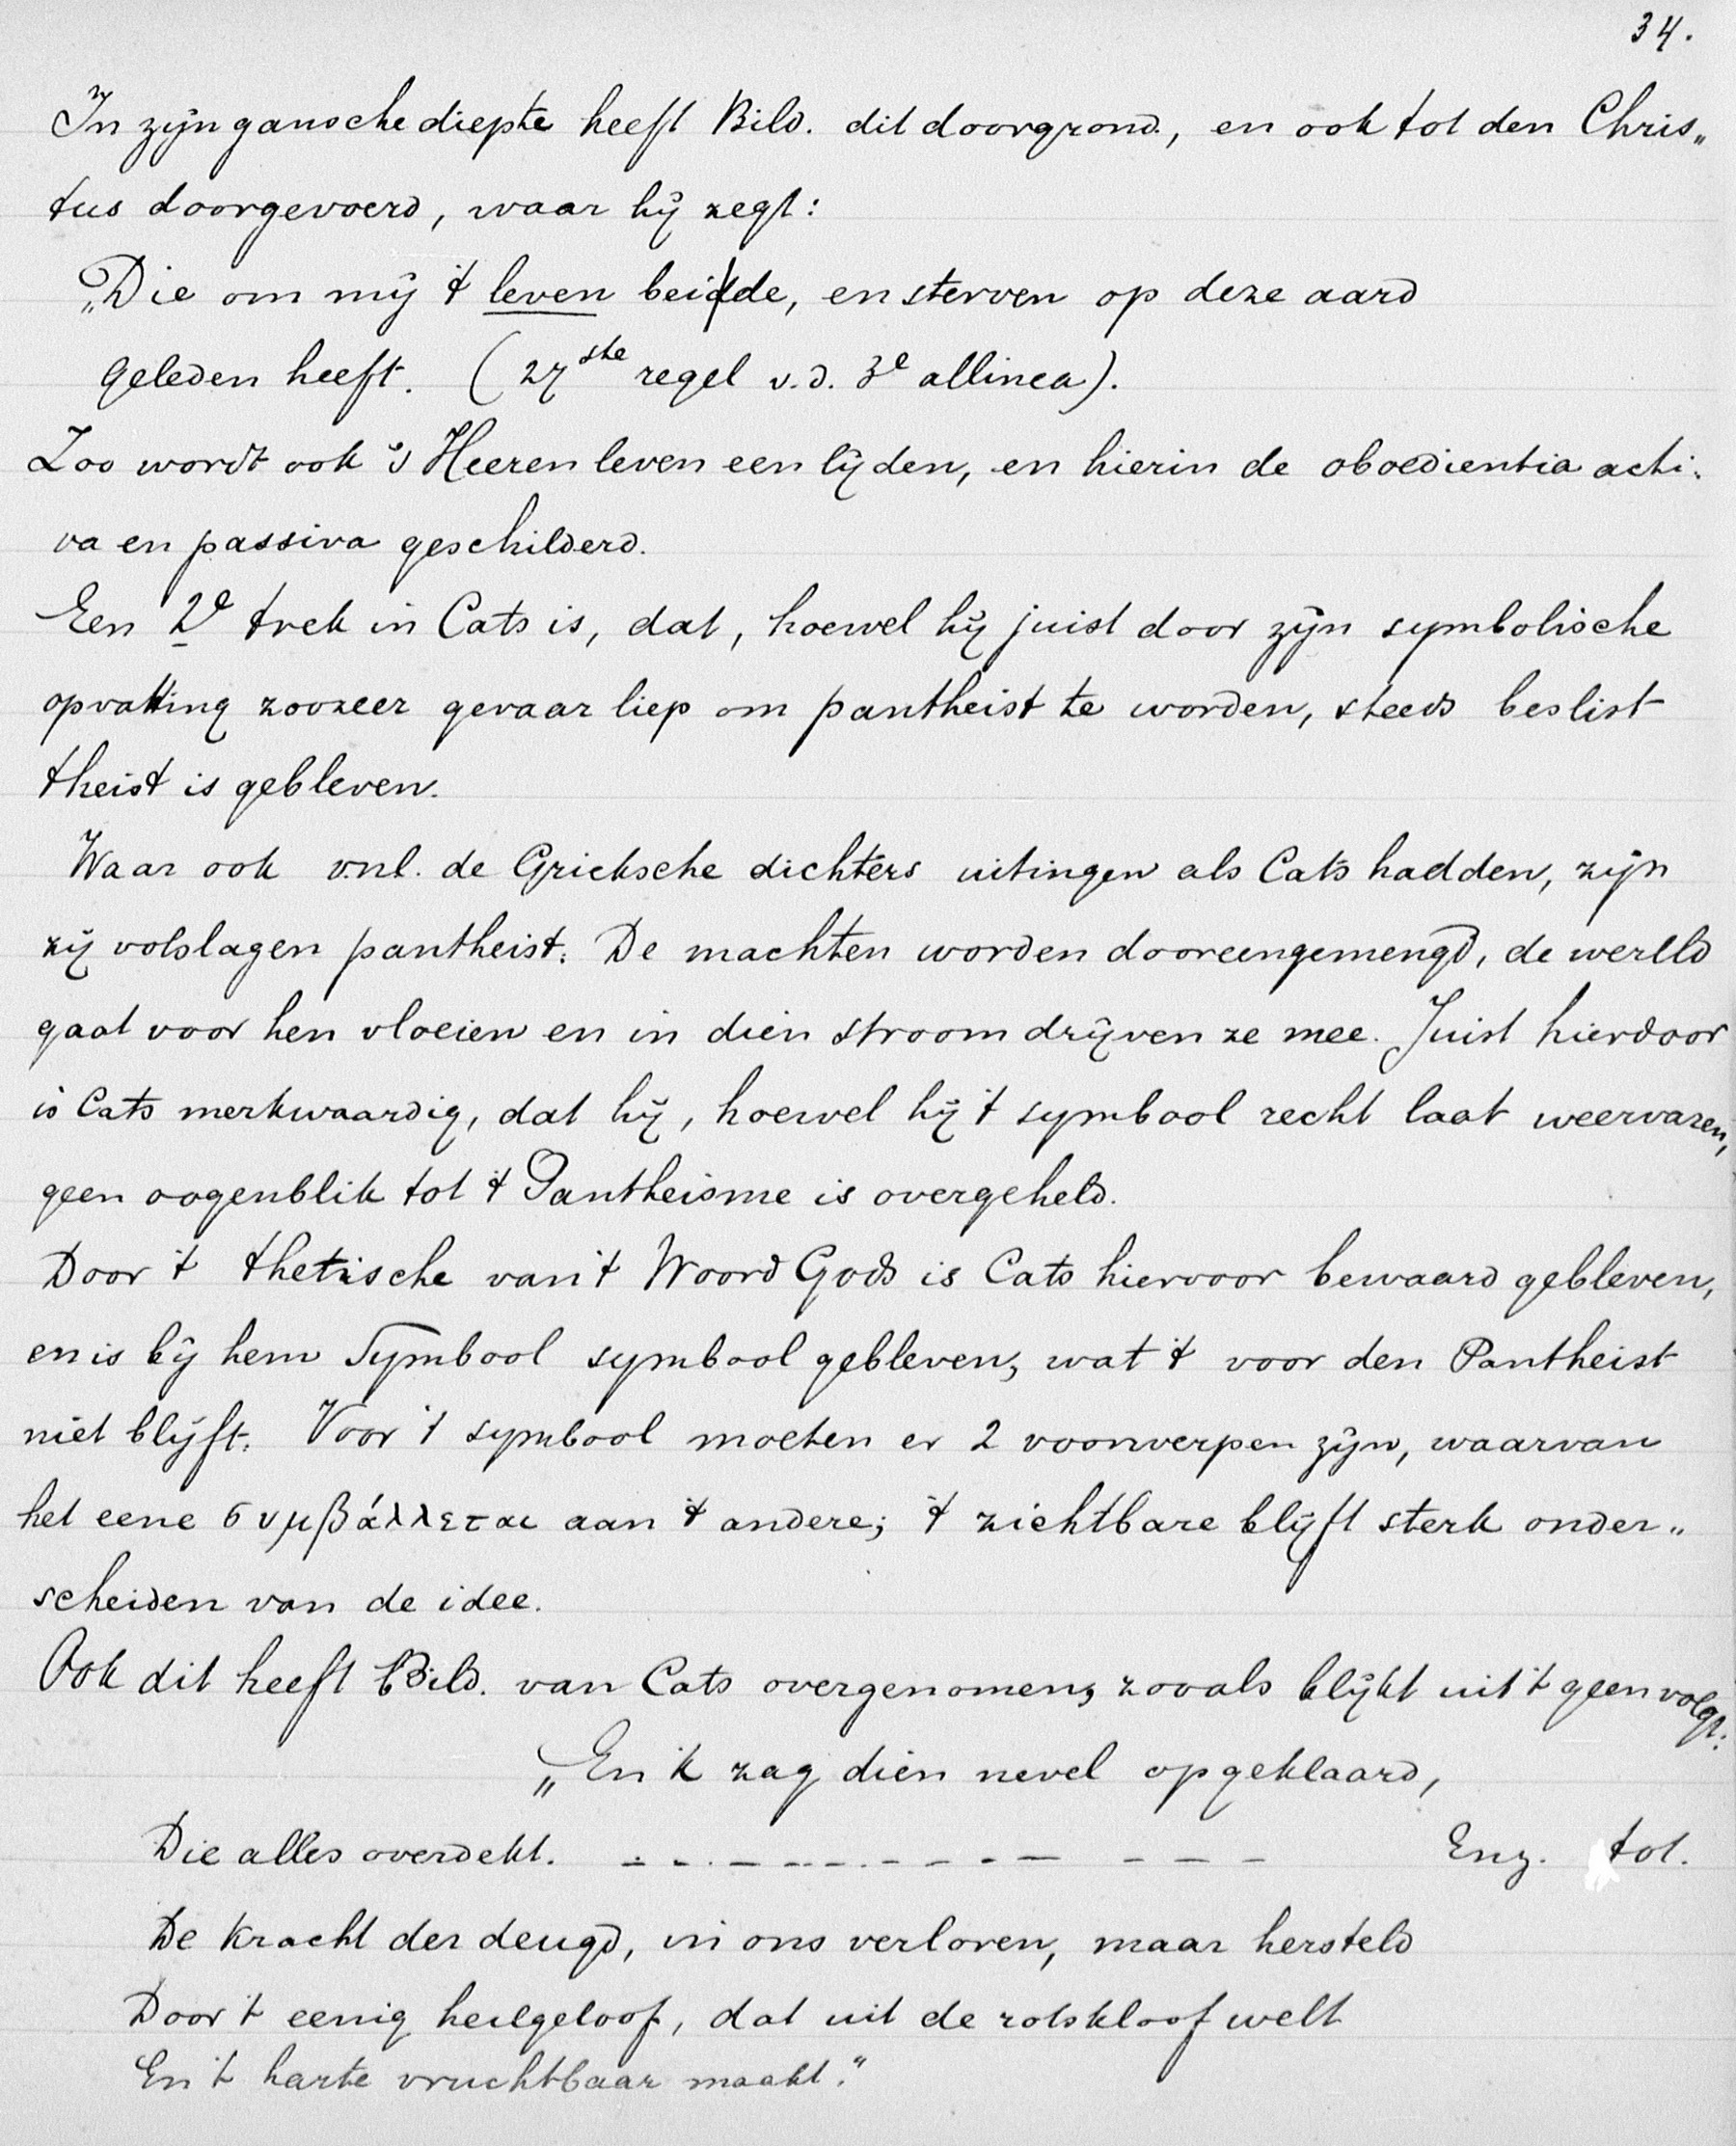 34.
In zijn gansche diepte heeft Bild. dit doorgrond, en ook tot den Chris„
tus doorgevoerd, waar hij zegt:
„Die om mij 't leven beidde, en sterven op deze aard
geleden heeft. (27ste regel v.d. 3e allinea).
Zoo wordt ook 's Heeren leven een lijden, en hierin de oboedientia acti.
va en passiva geschilderd.
Een 2e trek in Cats is, dat, hoewel hij juist door zijn symbolische
opvatting zoozeer gevaar liep om pantheist te worden, steeds beslist
theist is gebleven.
Waar ook v.nl. de Grieksche dichters uitingen als Cats hadden, zijn
zij volslagen pantheist. De machten worden dooreengemengd, de werlld
gaat voor hen vloeien en in dien stroom drijven ze mee. Juist hierdoor
is Cats merkwaardig, dat hij, hoewel hij 't symbool recht laat weervaren,
geen oogenblik tot 't Pantheisme is overgeheld.
Door 't thetische van 't Woord Gods is Cats hiervoor bewaard gebleven,
en is bij hem Symbool symbool gebleven, wat 't voor den Pantheist
niet blijft. Voor 't symbool moeten er 2 voorwerpen zijn, waarvan
het eene συμβάλλεται aan 't andere; 't zichtbare blijft sterk onder„
scheiden van de idee.
Ook dit heeft Bild. van Cats overgenomen, zooals blijkt uit 't geen volgt:
„En ik zag dien nevel opgeklaard,
Die alles overdekt. - - - - - - - - - - - - - Enz. tot.
De kracht der deugd, in ons verloren, maar hersteld
Door 't eenig heilgeloof, dat uit de rotskloof welt
En 't harte vruchtbaar maakt."